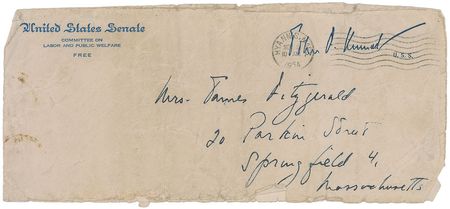 United States Senate
COMMITTEE ON
LABOR AND PUBLIC WELFARE
FREE
HYANNIS
1954
U.S.S.
Mrs. James Fitzgerald
20 Parkin Street
Springfield 4,
Massachusetts